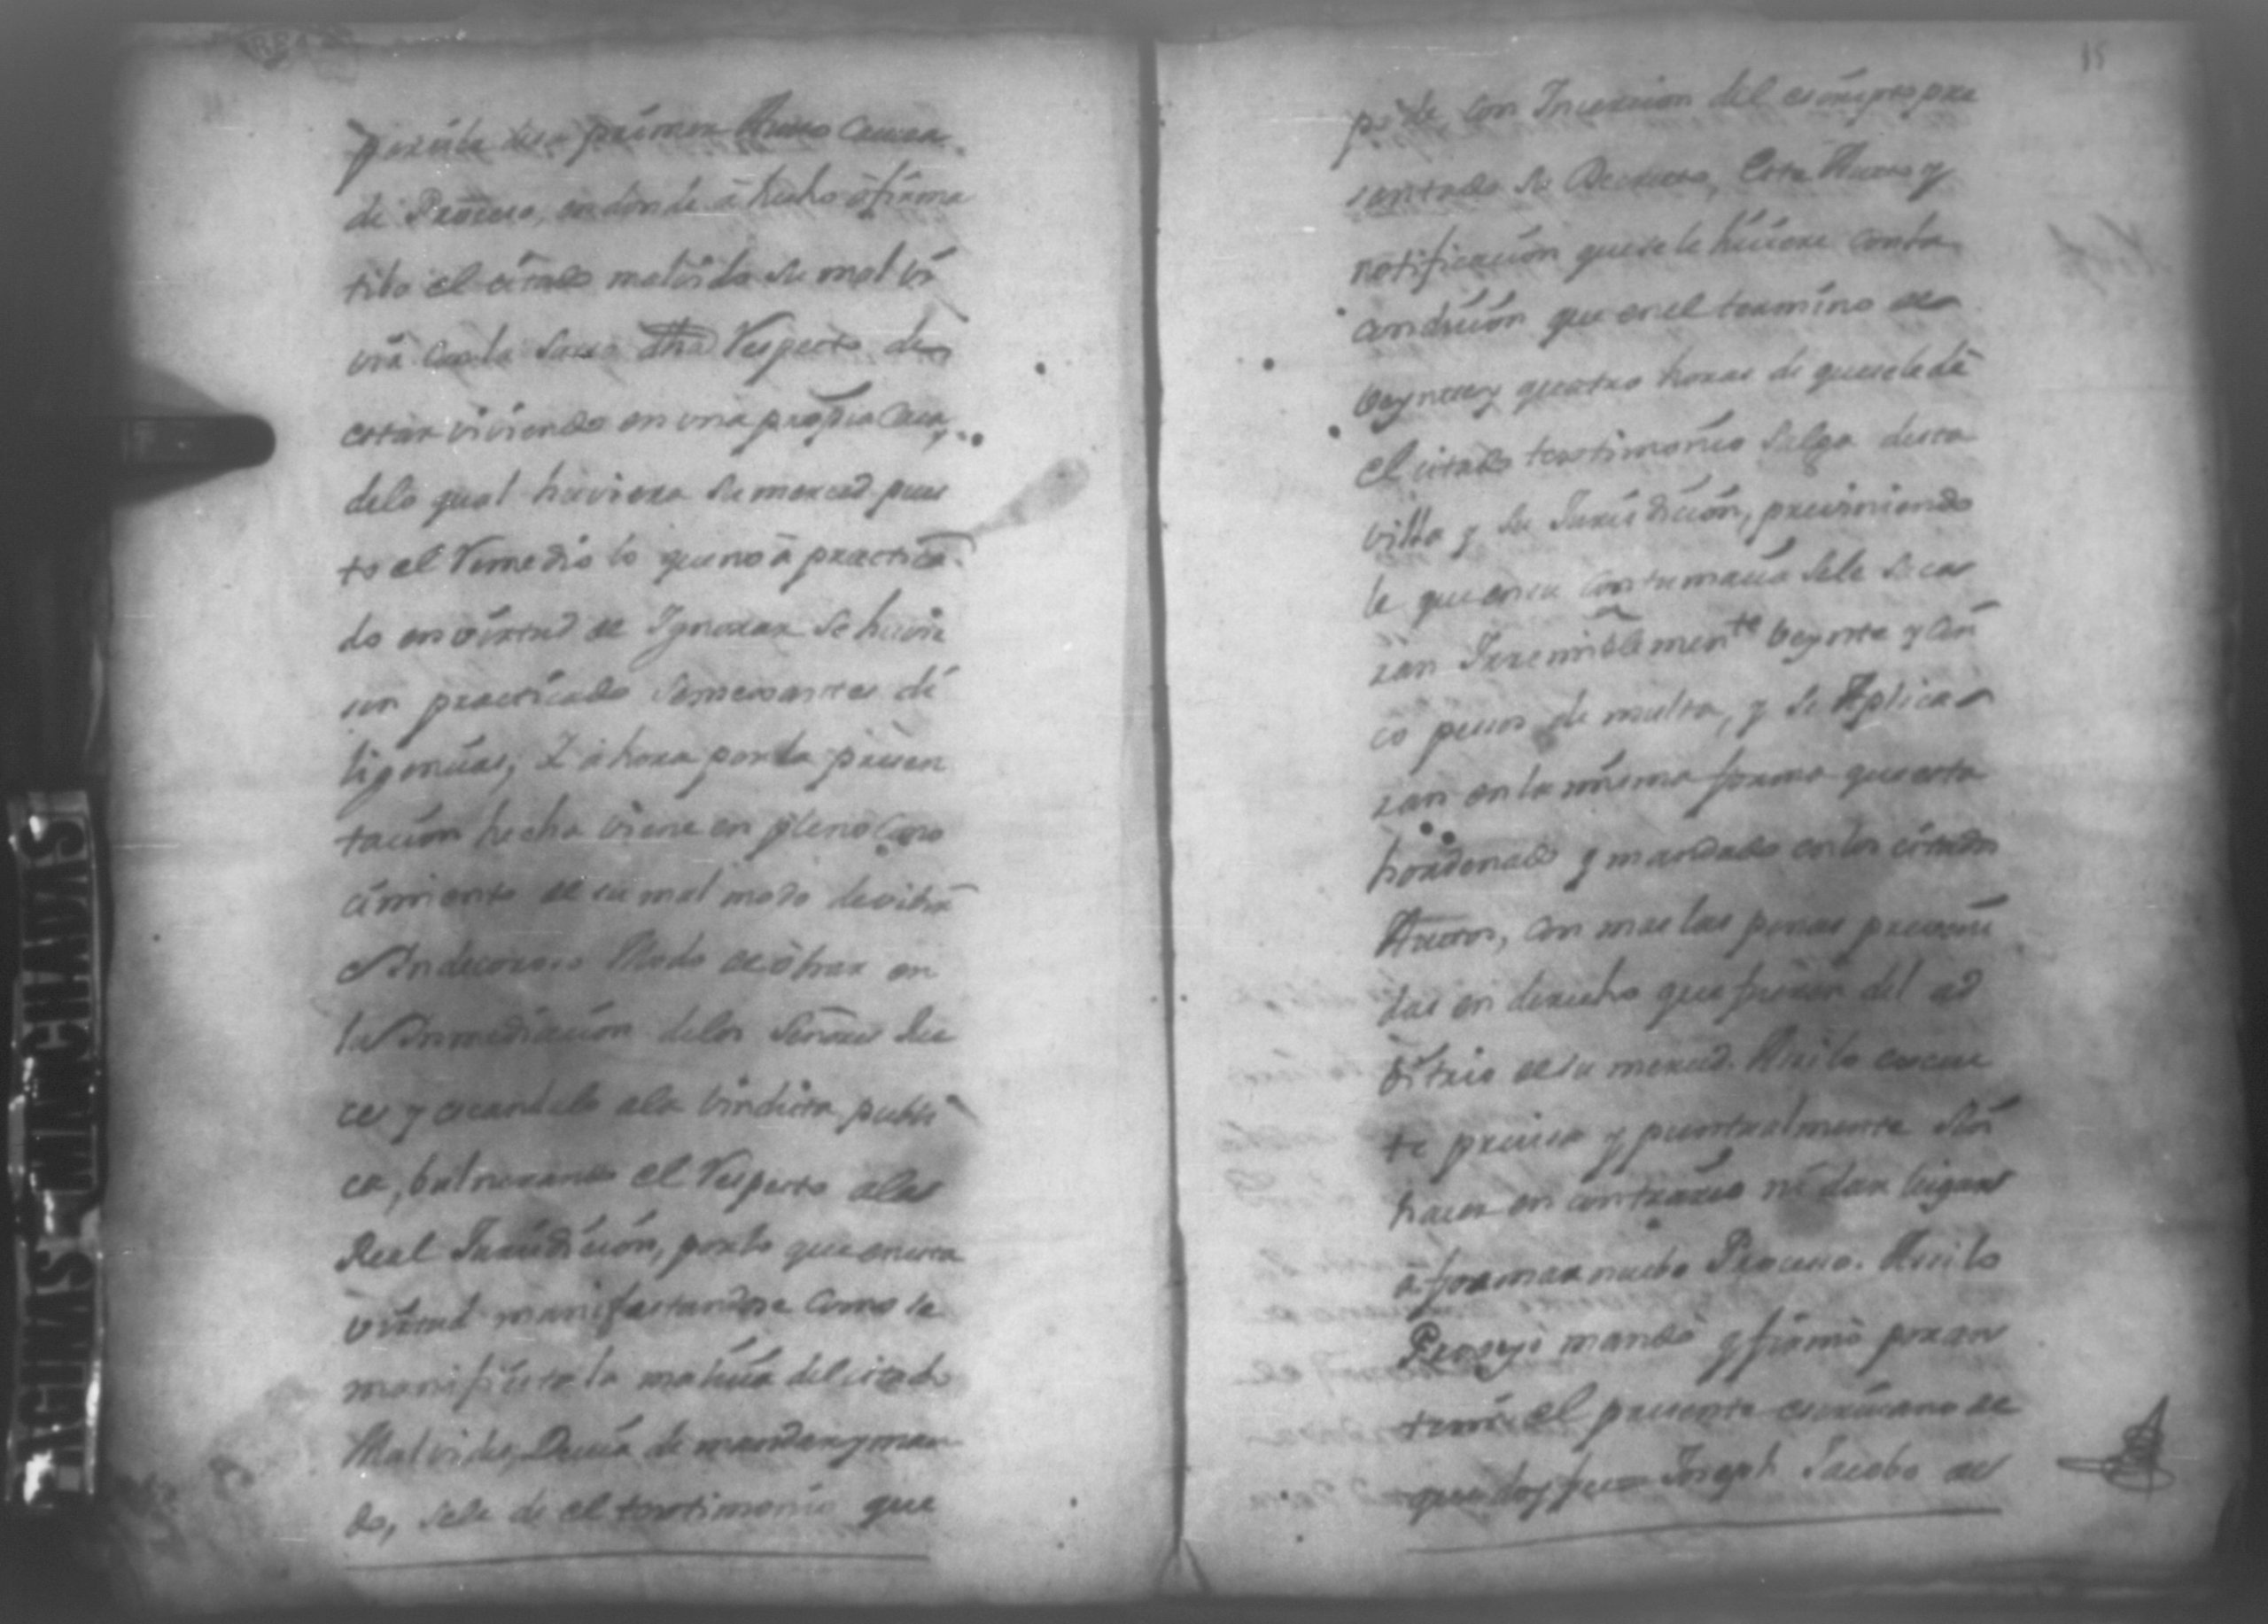 primer Auto Caveza
de Proceso, en donde à hecho àfirma
tibo el citado malvido su mal vi
vir con la Susso dha Respecto de
estar viviendo en una propia Casa,
delo qual huviera su merced pues
to el Remedio lo que no à practica
do en virtud de Ygnorar se huvie
sen practicado semexantes di
ligencias, Y àhora por la presen
tacion hecha viene en pleno Cono
cimiento de su mal modo de vibir
è Indecoroso Modo de òbrar en
la Inmediacion delos Señores Jue
ces y escandalo ala Vindicta publi
ca, bulnerando el Respecto alas
Real Jurisdicion, por lo que en esta
virtud manifestandose como se
manifiesta la malicia del citado
Malvido, Devia de mandar y man
do, sele de el testimonio que
15
pide con Insercion del escripto pre
sentado su Decreto, Este Auto y
notificacion que se le hiciere con la
condicion que en el termino de
beynte y quatro horas de que se le dè
el citado testimonio Salga desta
villa y su Jurisdicion, previniendo
le que en su contumacia sele sacar
ran Yrremiblemente beynte y cin
co pesos de multa, y se Aplica
ran en la misma forma que esta
hordenado y mandado en los citados
Autos, con mas las penas preveni
das en derecho que fueren del ad
vitrio de su merced. Asi lo execu
te precisa y puntualmente sin
hacer en contrario ni dar lugar
à formar nuebo Proceso. Asi lo
Proveyò mandò y firmò por an
temi el presente escrivano de
que doy fee Joseph Jacobo de